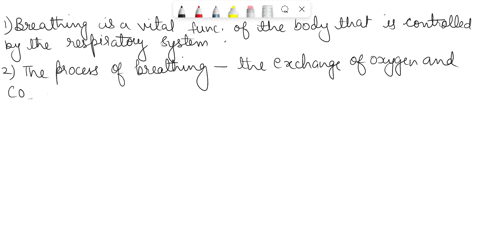 1) Breathing is a vital func. of the body that is controlled
by the respiratory system.
2) The process of breathing — the exchange of oxygen and
CO